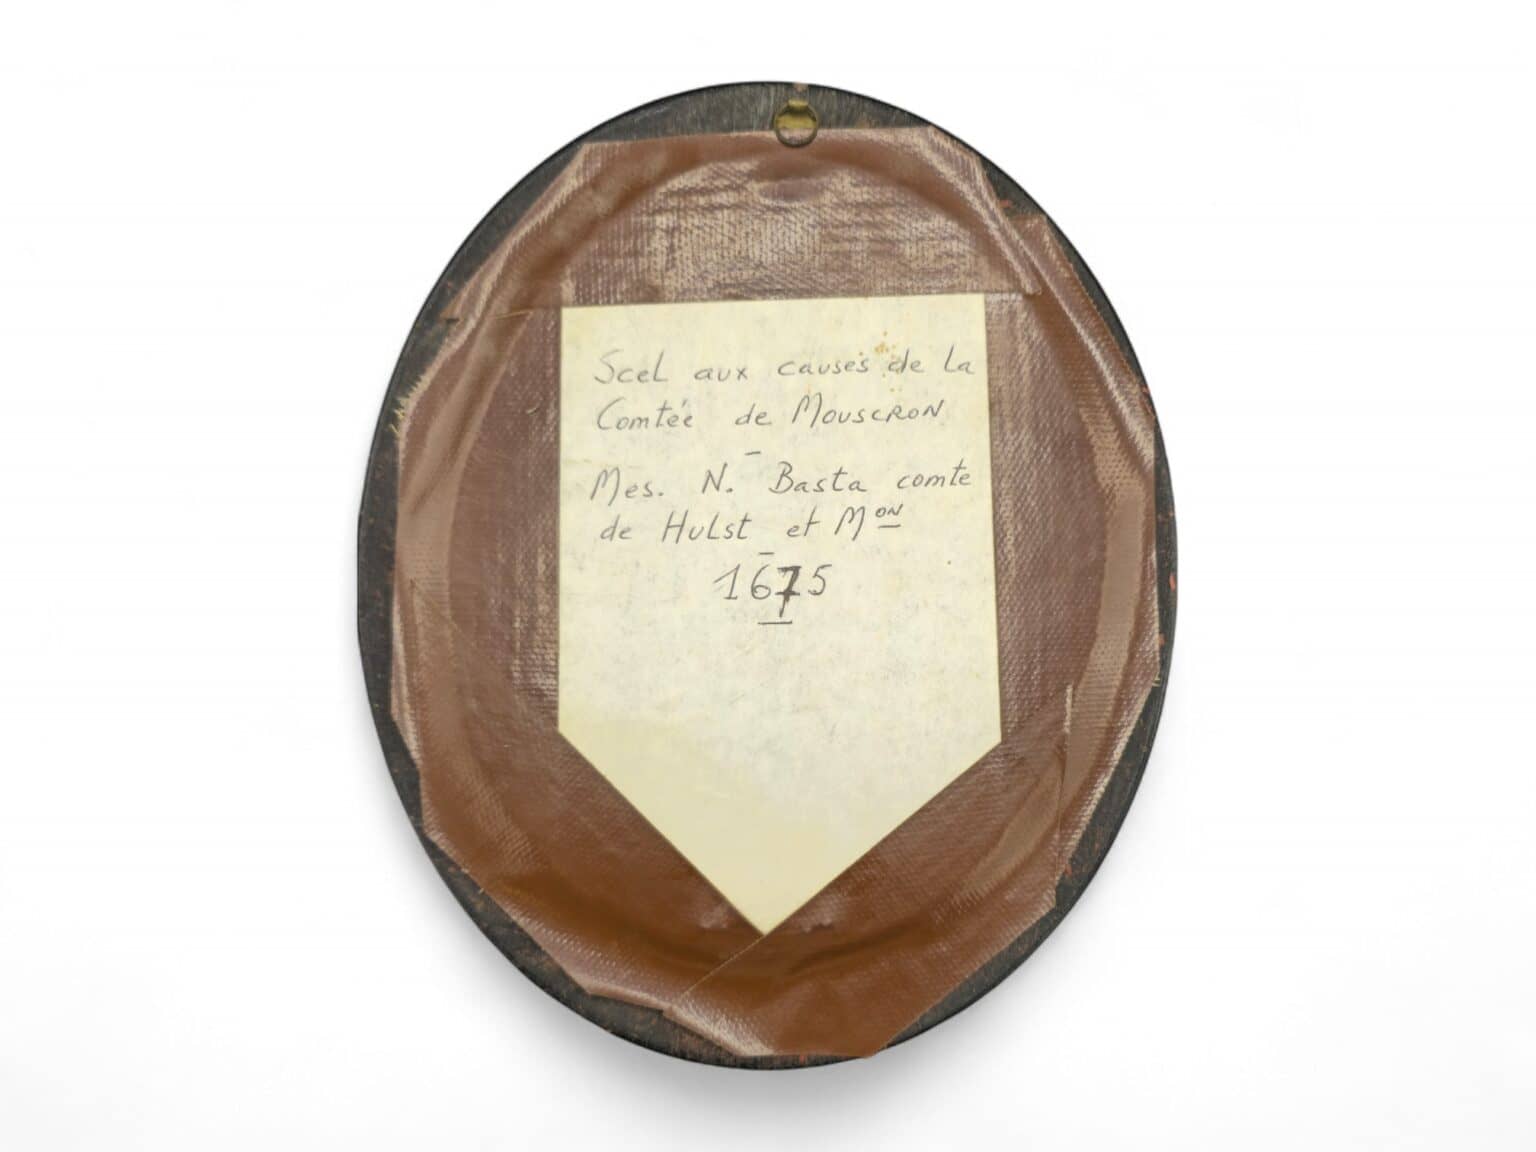 Scel aux causes de la
Comtée de Mouscron
–
Mes. N. Basta comte
de Hulst et Mon
–
1675